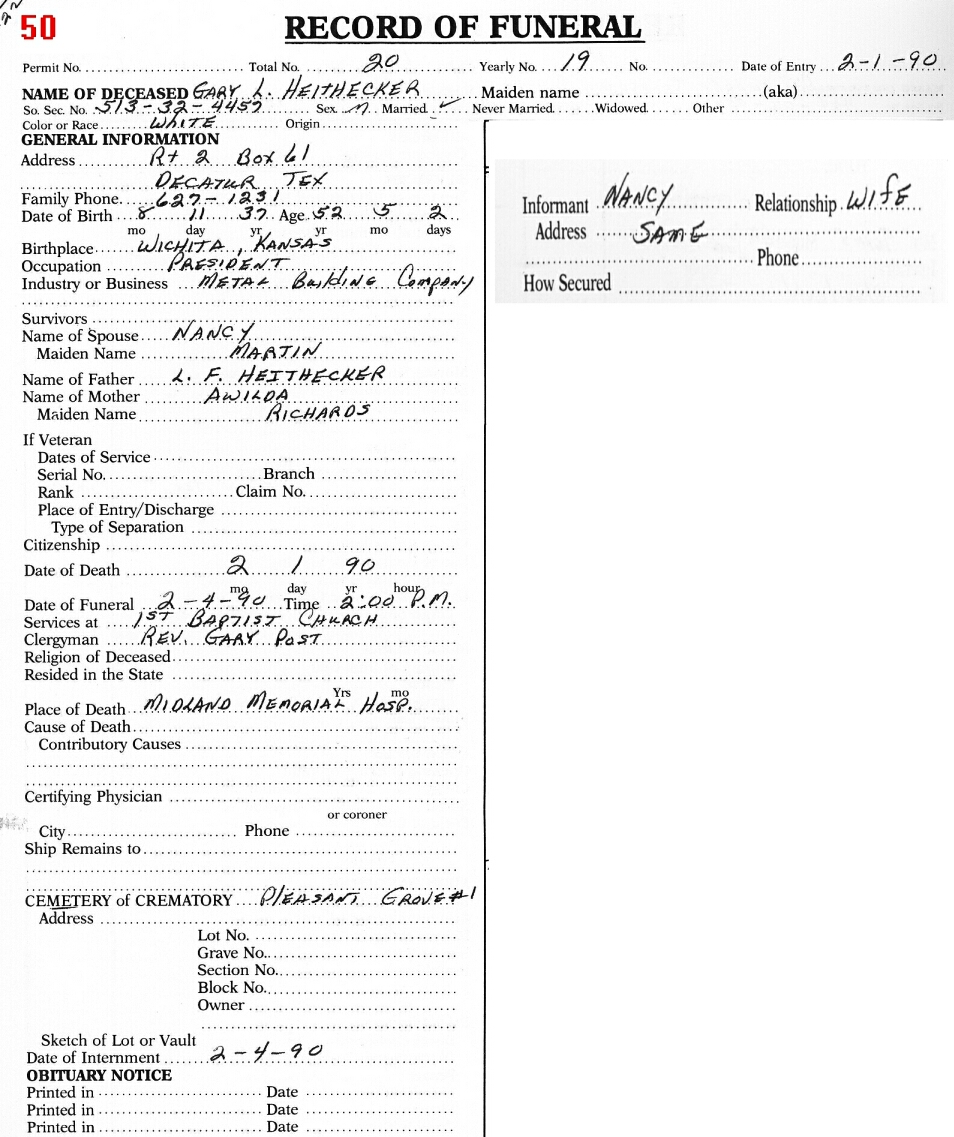 50
RECORD OF FUNERAL
Permit No. Total No. 20 Yearly No. 19 No. Date of Entry 2-1-90
NAME OF DECEASED GARY L. HEITHECKER Maiden name (aka)
So. Sec. No. 513-32-4457 Sex M Married ✓ Never Married Widowed Other
Color or Race WHITE Origin
GENERAL INFORMATION
Address Rt 2 Box 61
DECATUR TEX
Family Phone 627-1231
Date of Birth 8 11 37 Age 52 5 2
mo day yr yr mo days
Birthplace WICHITA, KANSAS
Occupation PRESIDENT
Industry or Business METAL Building Company
Survivors
Name of Spouse NANCY
Maiden Name MARTIN
Name of Father L. F. HEITHECKER
Name of Mother AWILDA
Maiden Name RICHARDS
If Veteran
Dates of Service
Serial No. Branch
Rank Claim No.
Place of Entry/Discharge
Type of Separation
Citizenship
Date of Death 2 1 90
mo day yr hour
Date of Funeral 2-4-90 Time 2:00 P.M.
Services at 1ST BAPTIST CHURCH
Clergyman REV. GARY POST
Religion of Deceased
Resided in the State
Yrs mo
Place of Death MIDLAND MEMORIAL HOSP.
Cause of Death
Contributory Causes
Certifying Physician
or coroner
City Phone
Ship Remains to
CEMETERY of CREMATORY PLEASANT GROVE #1
Address
Lot No.
Grave No.
Section No.
Block No.
Owner
Sketch of Lot or Vault
Date of Internment 2-4-90
OBITUARY NOTICE
Printed in Date
Printed in Date
Printed in Date
Informant NANCY Relationship WIFE
Address SAME
Phone
How Secured